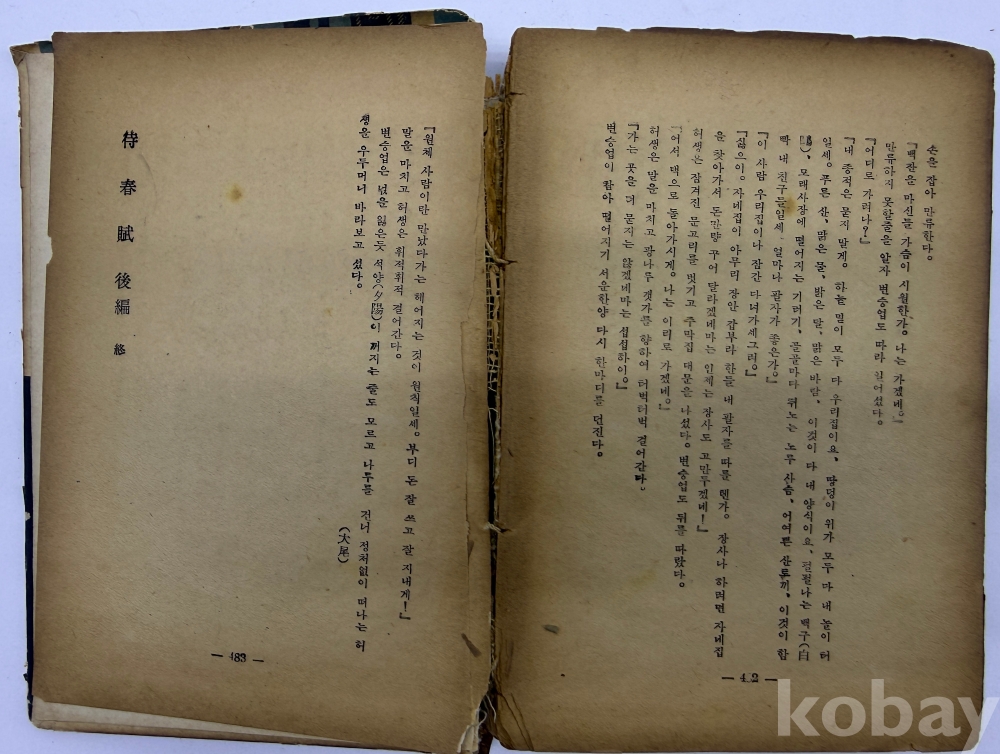 손을 잡아 만류한다。
『백잔을 마신들 가슴이 시원한가。나는 가겠네。』
만류하지 못할줄을 알자 변승업도 따라 일어섰다。
『어디르 가려나?』
『내 종적은 묻지 말게。하늘 밑이 모두 다 우리집이요、땅덩이 위가 모두 다 내 놀이 터
일세。푸른 산、맑은 물、밝은 달、맑은 바람、이것이 다 내 양식이요、펄펄나는 백구(白
鷗)、모래사장에 떨어지는 기러기、골골마다 뛰노는 노루 사슴、어여쁜 산토끼、이것이 함
빡 내 친구들일세 얼마나 팔자가 좋은가。』
『이 사람 우리집이나 잠간 다녀가세그려。』
『싫으이。자네집이 아무리 장안 갑부라 한들 내 팔자를 따를 텐가。장사나 하려면 자네집
을 찾아가서 돈만량 꾸어 달라겠네마는 인제는 장사도 고만두겠네!』
허생은 잠겨진 문고리를 벗기고 주막집 대문을 나섰다。변승업도 뒤를 따랐다。
『어서 댁으로 돌아가시게。나는 이리로 가겠네。』
허생은 말을 마치고 광나루 갯가를 향하여 터벅터벅 걸어간다。
『가는 곳을 더 묻지는 않겠네마는 섭섭하이。』
변승업이 참아 떨어지기 서운한양 다시 한마디를 던진다。
— 4 2 —
『원체 사람이란 만났다가는 헤어지는 것이 원칙일세。부디 돈 잘 쓰고 잘 지내게!』
말을 마치고 허생은 휘적휘적 걸어간다。
변승업은 넋을 잃은듯 석양(夕陽)이 꺼지는 줄도 모르고 나루를 건너 정처없이 떠나는 허
생을 우두머니 바라보고 섰다。
(大尾)
待春賦後編 終
— 483 —
kobay